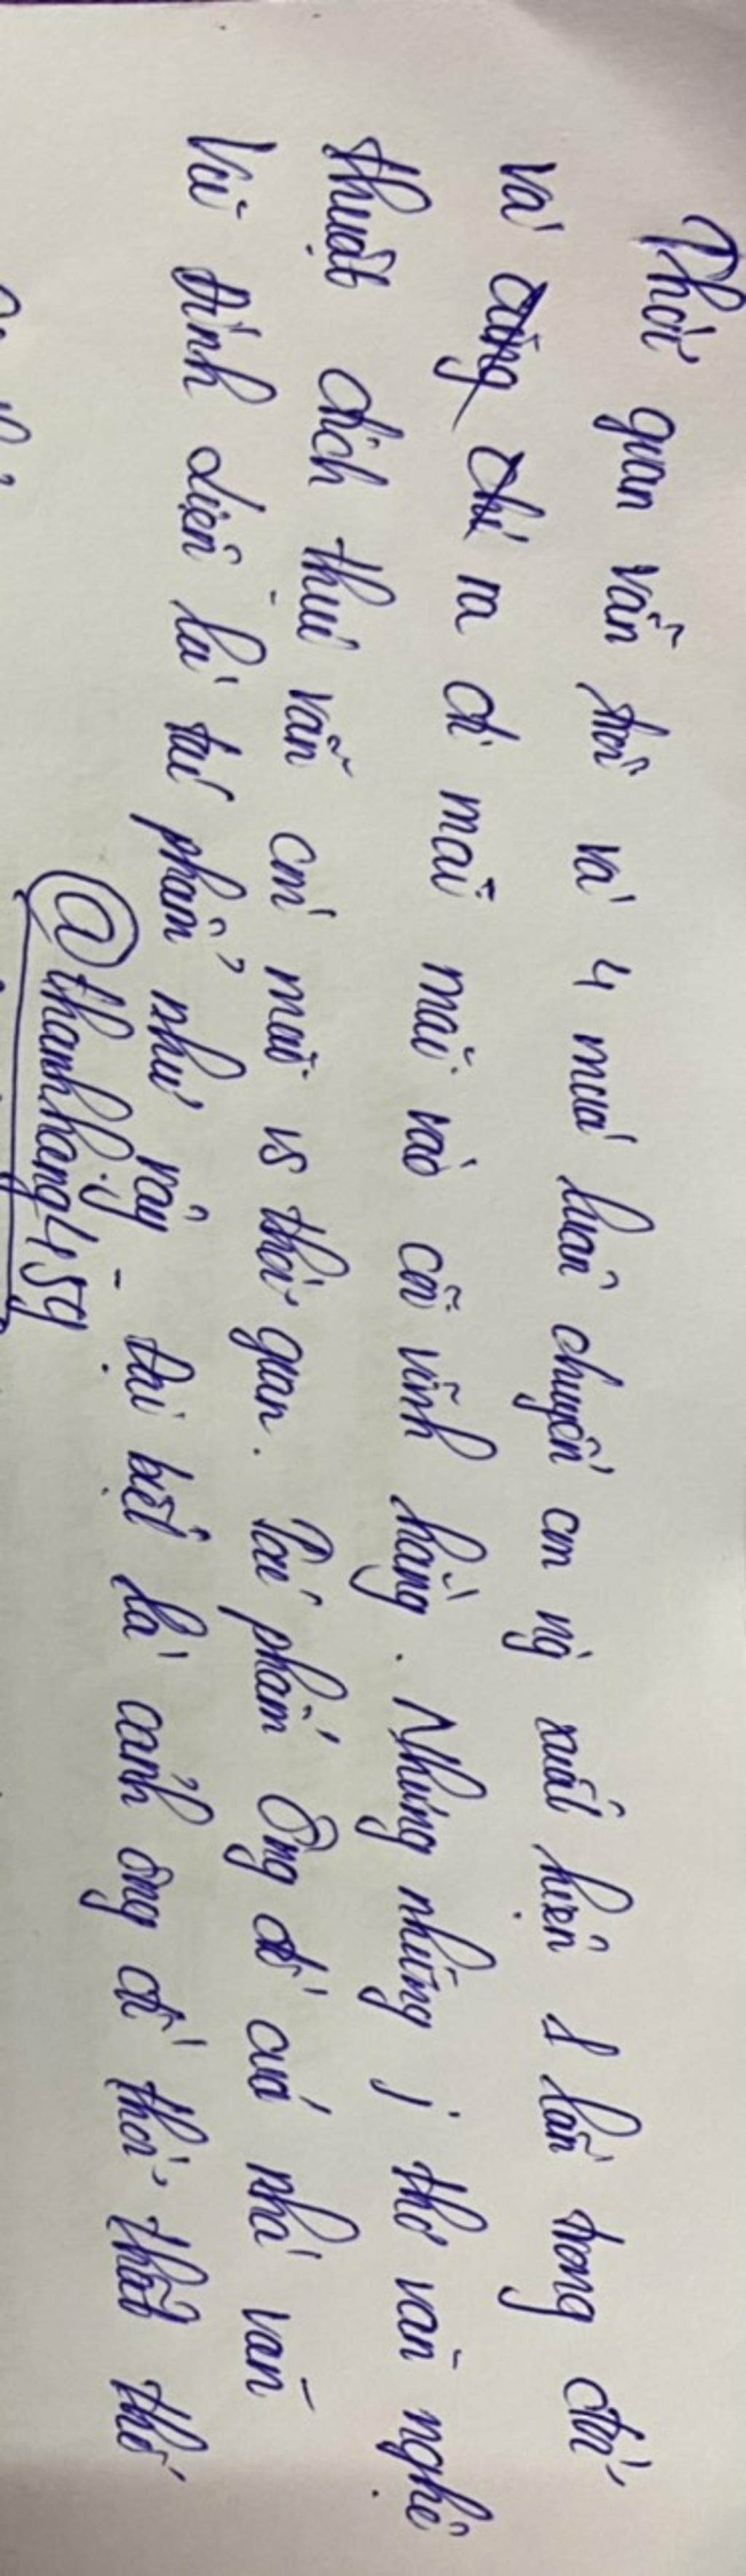 Thời gian vẫn trôi và 4 mùa luân chuyển con ng xuất hiện 1 lần trong đời
và ra đi mãi mãi vào cõi vĩnh hằng. Nhưng những j thơ văn nghệ
thuật đích thực vẫn còn mãi vs thời gian. Tác phẩm Ông đồ của nhà văn
Vũ Đình Liên là tác phẩm như vậy - đặc biệt là cảnh ông đồ thời thất thế
@thanh.hang459